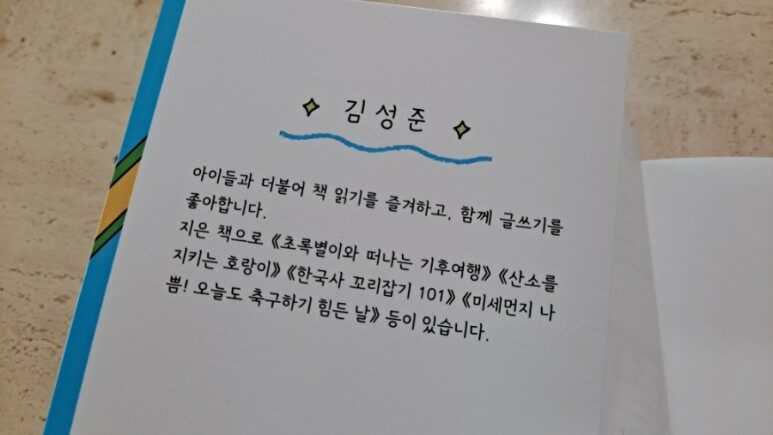 김성준
아이들과 더불어 책 읽기를 즐겨하고, 함께 글쓰기를
좋아합니다.
지은 책으로 《초록별이와 떠나는 기후여행》 《산소를
지키는 호랑이》 《한국사 꼬리잡기 101》 《미세먼지 나
쁨! 오늘도 축구하기 힘든 날》 등이 있습니다.